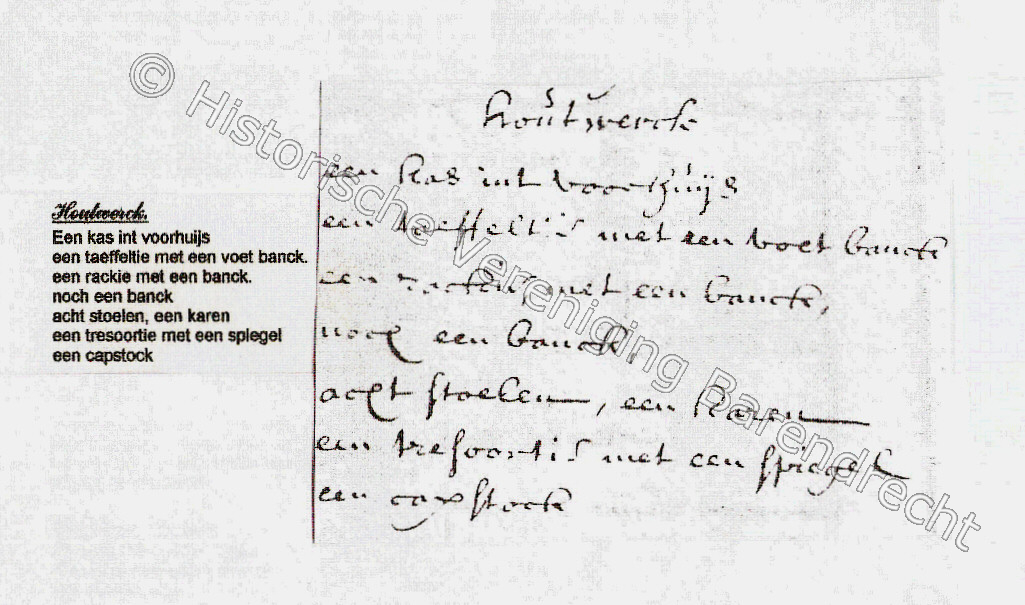 © Historische Vereniging Barendrecht
Houtwerck.
Een kas int voorhuijs
een taeffeltie met een voet banck.
een rackie met een banck.
noch een banck
acht stoelen, een karen
een tresoortie met een spiegel
een capstock
houtwerck
een kas int voorhuijs
een taeffeltie met een voet banck
een rackie met een banck,
noch een banck,
acht stoelen, een karen
een tresoortie met een spiegel
een capstock